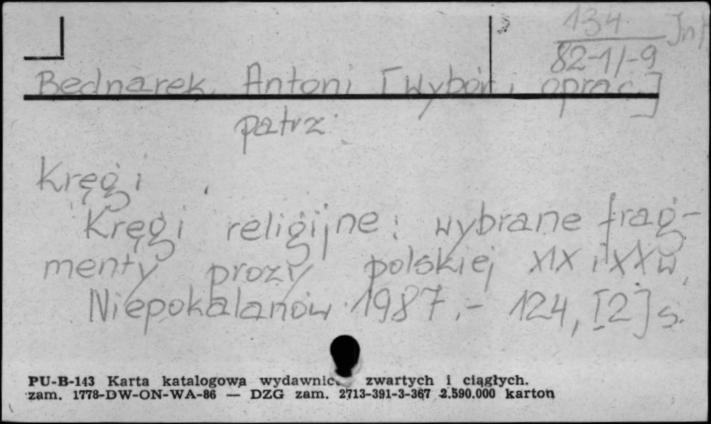 134
82-1/-9
Bednarek, Antoni [Wybór i oprac.]
patrz:
Kręgi
Kręgi religijne : wybrane frag-
menty prozy polskiej XIX i XX w.
Niepokalanów 1987.- 124, [2] s.
PU-B-143 Karta katalogowa wydawnic zwartych i ciągłych.
zam. 1778-DW-ON-WA-86 — DZG zam. 2713-391-3-367 2.590.000 karton